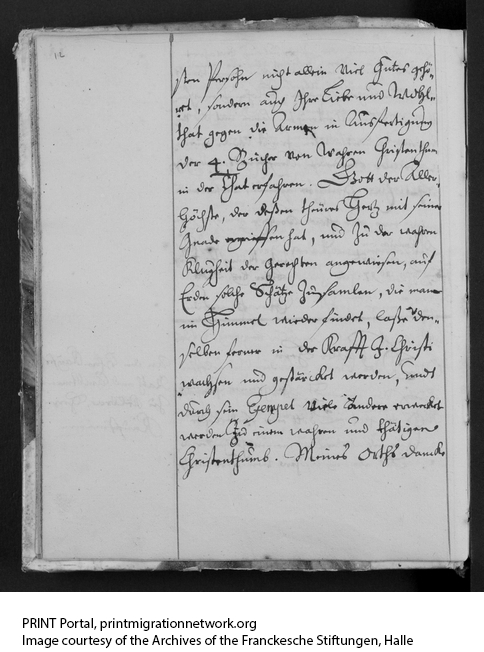 12
sten Persohn nicht allein viel Gutes gehö-
ret, sondern auch Ihre Liebe und Wohl-
that gegen die Armen in Ausfertigung
der 4. Bücher von Wahren Christenthum
in der That erfahren. Gott der Aller-
höchste, der deßen theures Hertz mit seiner
Gnade ergriffen hat, und zu der wahren
Klugheit der Gerechten angewiesen, auf
Erden solche Schätze zu samlen, die man
im Himmel wieder findet, laße den-
selben ferner in der Krafft J. Christi
wachsen und gestärcket werden, undt
durch sein Exempel viele andere erwecket
werden zu einem wahren und thätigen
Christenthumb. Meines Orths dancke
PRINT Portal, printmigrationnetwork.org
Image courtesy of the Archives of the Franckesche Stiftungen, Halle